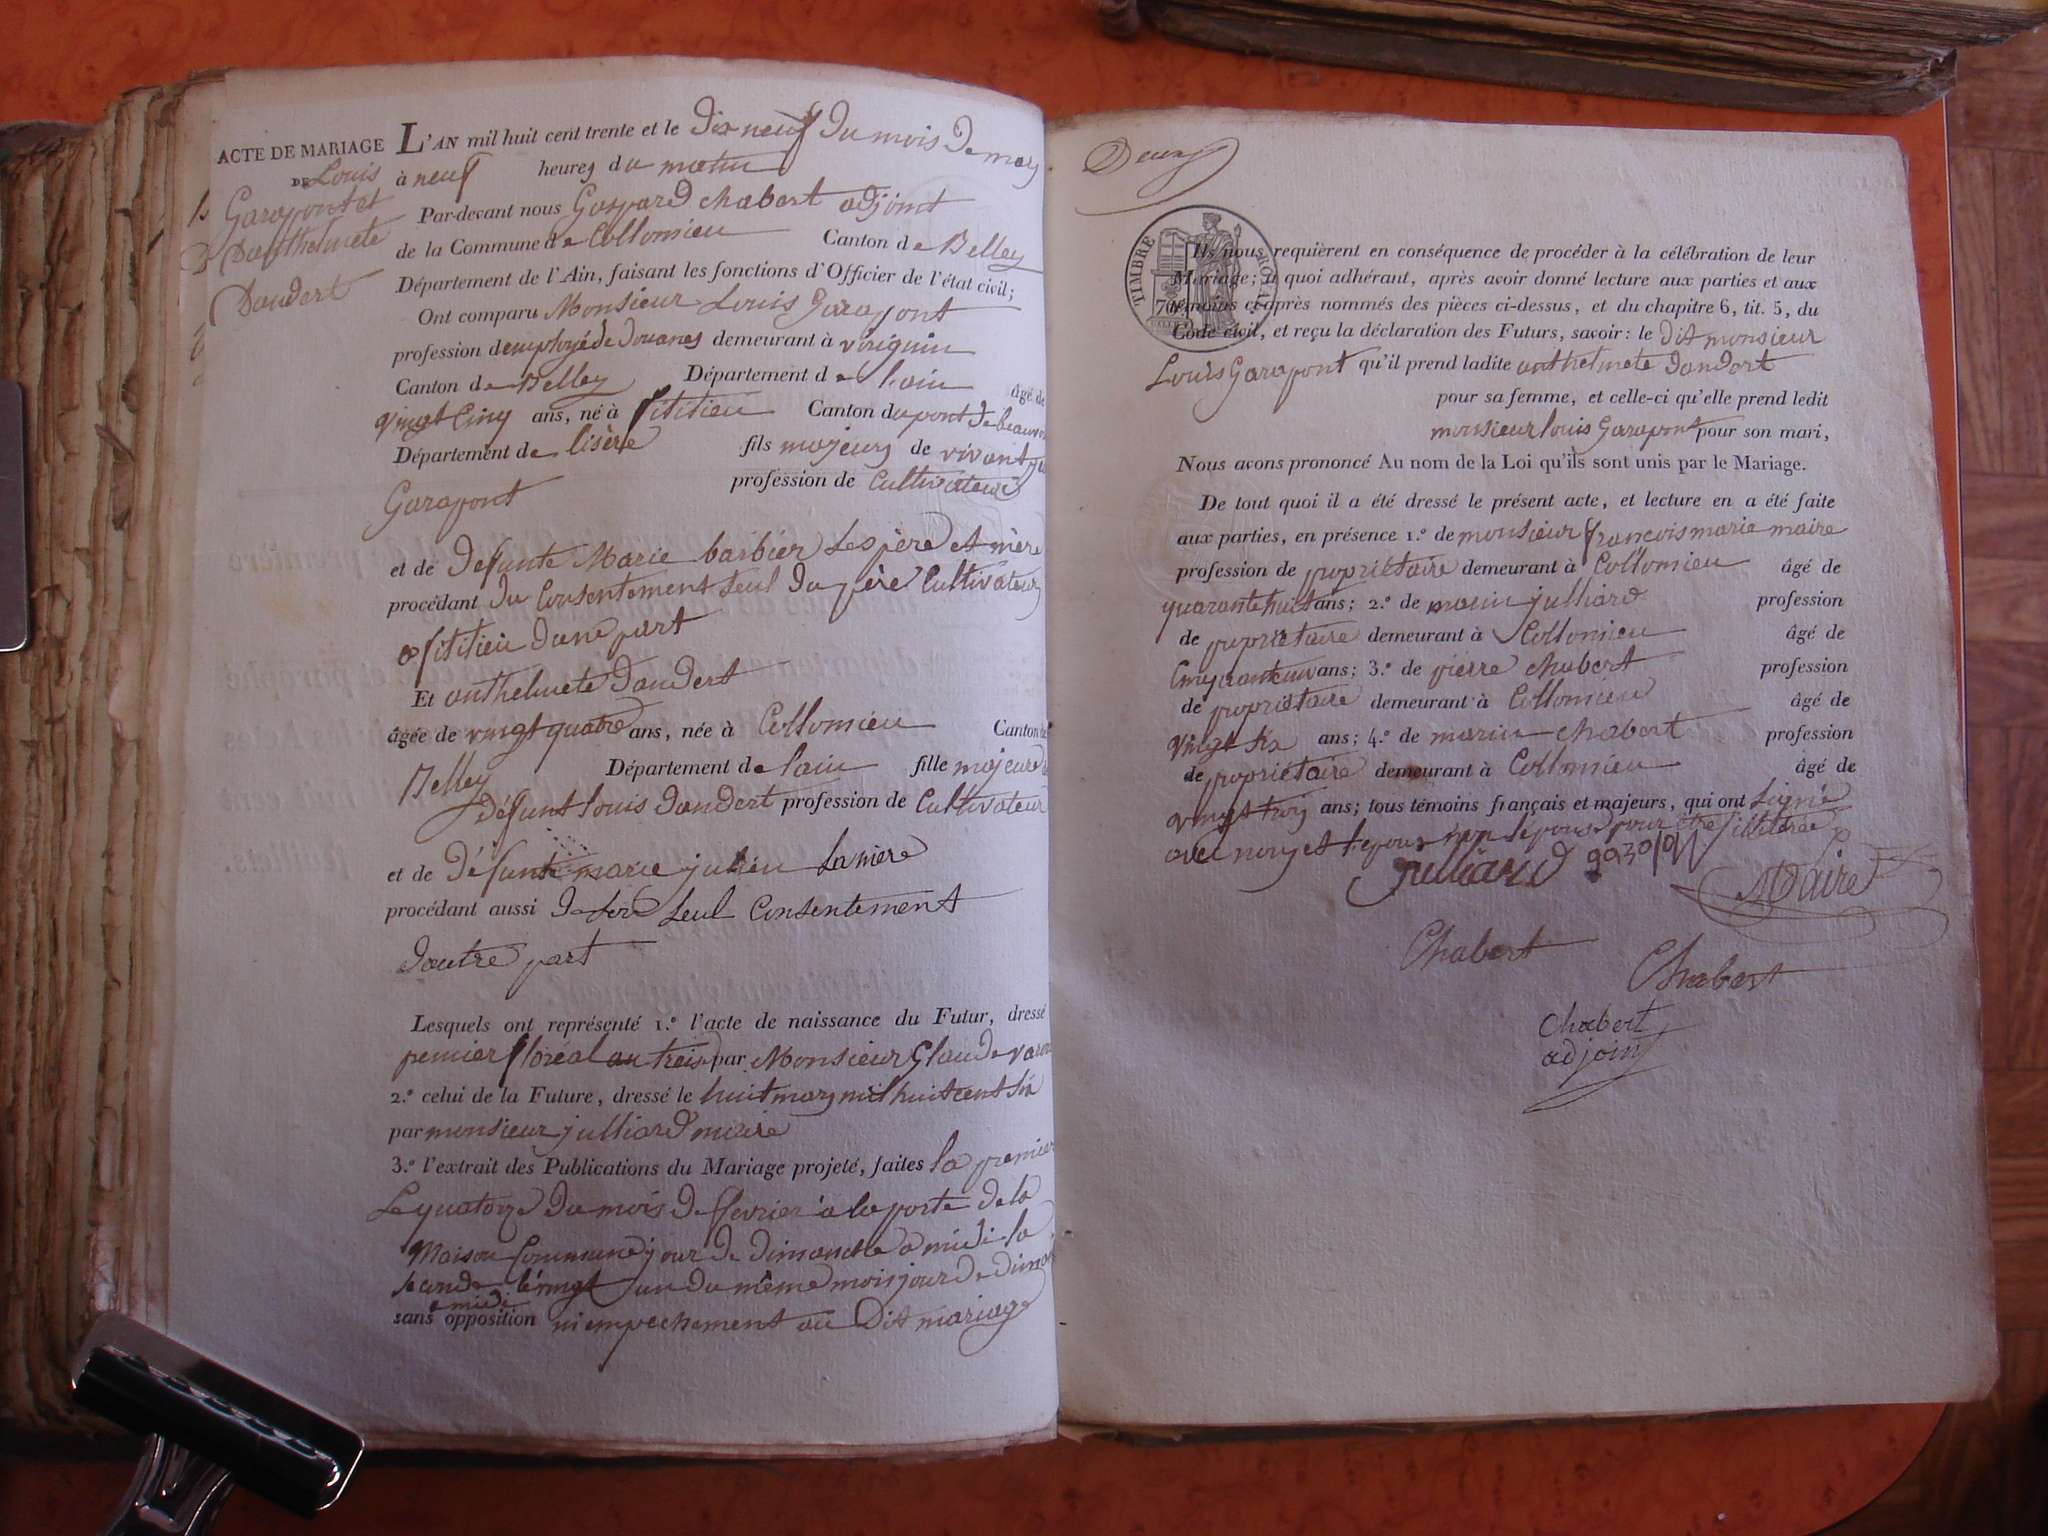 ACTE DE MARIAGE
DE Louis
Garapont et
Danthelmete
Dandert
L'AN mil huit cent trente et le dix neuf du mois de mars
à neuf heures du matin
Par-devant nous Gaspard chabert adjoint
de la Commune de Collomieu Canton de Belley
Département de l'Ain, faisant les fonctions d'Officier de l'état civil;
Ont comparu Monsieur Louis Garapont
profession d'employé de Douanes demeurant à virignin
Canton de Belley Département de l'ain âgé de
vingt Cinq ans, né à fitilieu Canton du pont de beauvoi
Département de lisère fils majeurs de vivant
Garapont profession de Cultivateur
et de défunte Marie barbier Ses père et mère
procédant du Consentement Seul du père Cultivateur
a fitilieu d'une part
Et anthelmete Dandert
âgée de vingt quatre ans, née à Collomieu Canton de
Belley Département de lain fille majeure de
Défunt louis dandert profession de Cultivateur
et de défunte marie julien Sa mère
procédant aussi de Son Seul Consentement
dautre part
Lesquels ont représenté 1.º l'acte de naissance du Futur, dressé
premier floréal an treis par Monsieur Glaude varen
2.º celui de la Future, dressé le huit mars mil huit cent Six
par monsieur julliard maire
3.º l'extrait des Publications du Mariage projeté, faites la premier
Le quatorze du mois de fevrier à la porte de la
Maison Commune jour de dimanche a midi la
seconde le vingt un du même mois jour de diman
a midi
sans opposition ni empechement au Dit mariage
Deux
TIMBRE ROYAL
70
Ils nous requièrent en conséquence de procéder à la célébration de leur
Mariage; à quoi adhérant, après avoir donné lecture aux parties et aux
témoins ci-après nommés des pièces ci-dessus, et du chapitre 6, tit. 5, du
Code civil, et reçu la déclaration des Futurs, savoir: le Dit monsieur
Louis Garapont qu'il prend ladite anthelmete dandert
pour sa femme, et celle-ci qu'elle prend ledit
monsieur louis Garapont pour son mari,
Nous avons prononcé Au nom de la Loi qu'ils sont unis par le Mariage.
De tout quoi il a été dressé le présent acte, et lecture en a été faite
aux parties, en présence 1.º de monsieur francois marie maire
profession de propriétaire demeurant à Collomieu âgé de
quarante huit ans; 2.º de marin julliard profession
de propriétaire demeurant à Collomieu âgé de
Cinquante un ans; 3.º de pierre chabert profession
de propriétaire demeurant à Collomieu âgé de
vingt six ans; 4.º de marin chabert profession
de propriétaire demeurant à Collomieu âgé de
vingt trois ans; tous témoins français et majeurs, qui ont Signé
avec nous et lepoux non lepouse pour être illitérée
Julliard garapon
Maire
Chabert
Chabert
chabert
adjoint